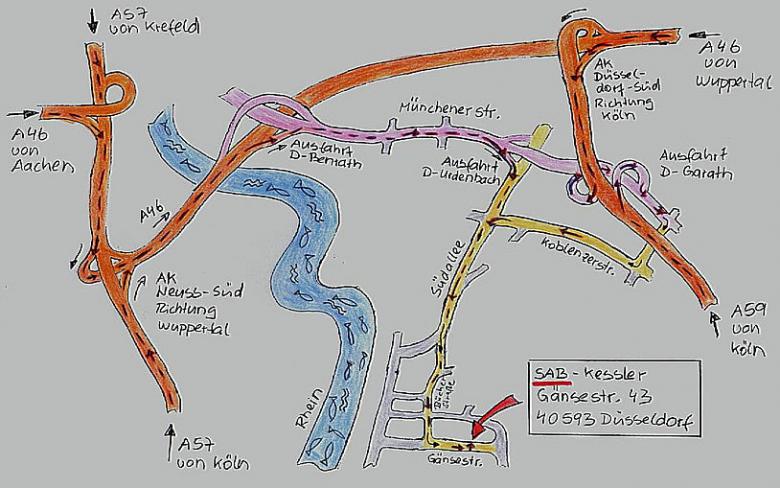 A57
von Krefeld
A46
von
Aachen
A46
AK
Neuss-Süd
Richtung
Wuppertal
A57
von Köln
Rhein
Münchenerstr.
Ausfahrt
D-Benrath
Ausfahrt
D-Urdenbach
AK
Düssel-
dorf-Süd
Richtung
Köln
A46
von
Wuppertal
Ausfahrt
D-Garath
Südallee
Koblenzerstr.
A59
von
Köln
straße
Gänsestr.
SAB - Kessler
Gänsestr. 43
40593 Düsseldorf